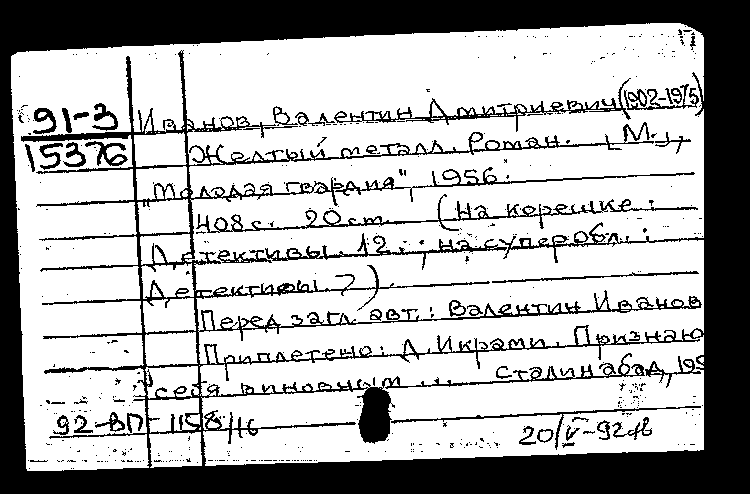 17
91-3 Иванов, Валентин Дмитриевич (1902-1975)
15376 Желтый металл. Роман. [М.],
"Молодая гвардия", 1956.
408 с. 20 ст. (На корешке:
Детективы. 12.; на суперобл.:
Детективы. 7).
Перед загл. авт.: Валентин Иванов
Приплетено: Д. Икрами. Признаю
себя виновным ... Сталинабад, 195
92-ВП-1158/16
20/V-92